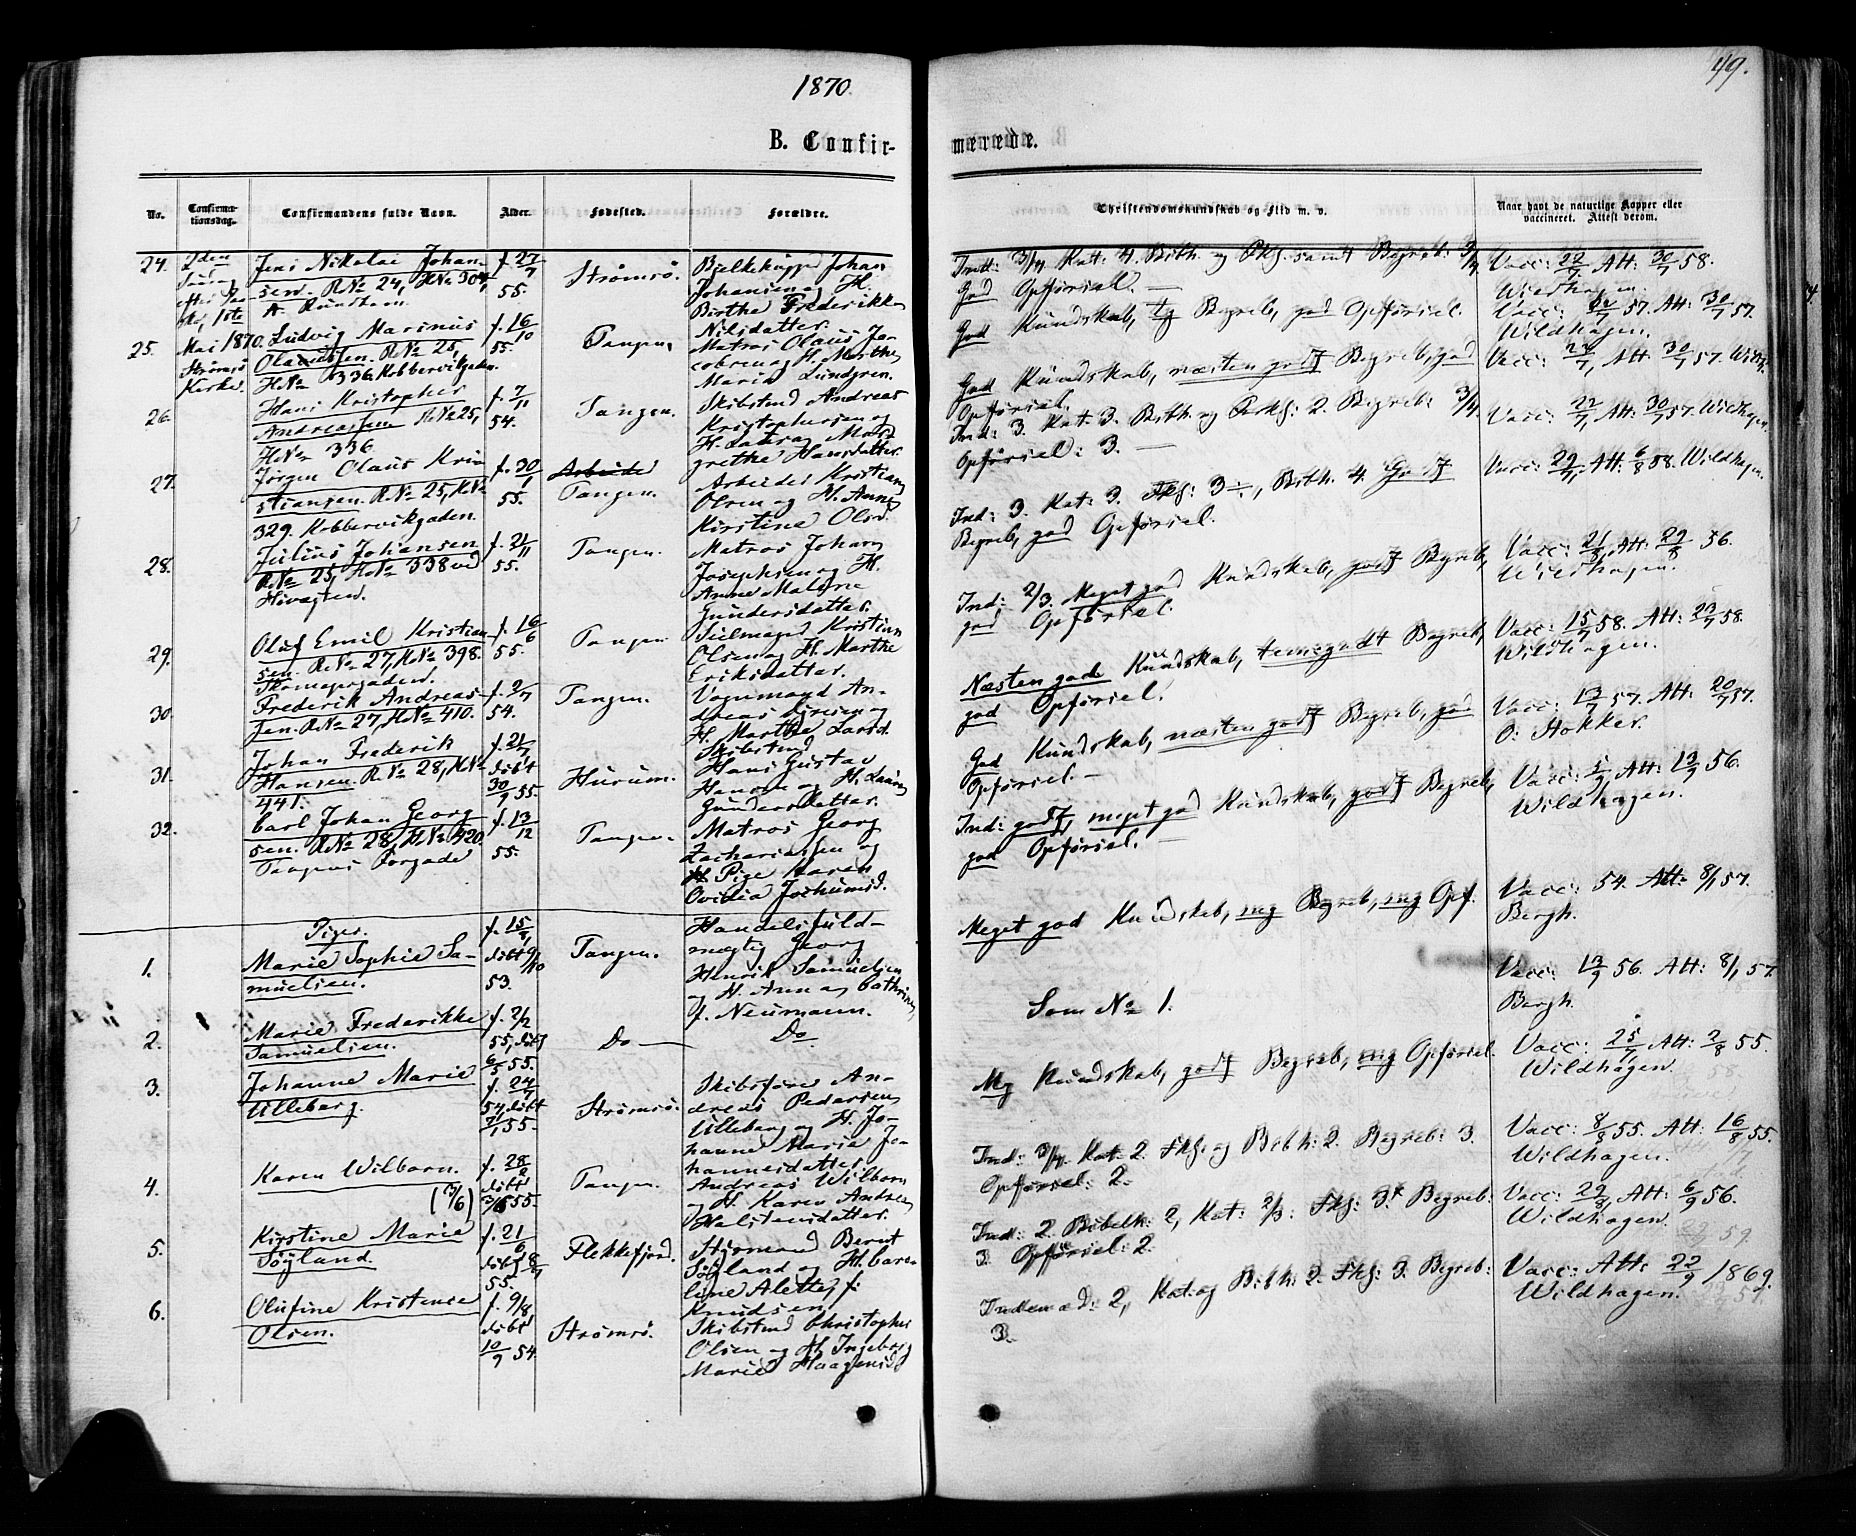 1870.
49.
B. Confir-
merede.
No.
Confirma-
tionsdag.
Confirmandens fulde Navn.
Alder.
Fødested.
Forældre.
Christendomskundskab og Flid m. v.
Naar havt de naturlige Kopper eller
vaccineret. Attest derom.
24.
2den
Søndag
efter Paa-
ske, 1ste
Mai 1870.
Strømsø
Kirke.
Jens Nikolai Johan-
sen. R.No 24, H.No 304,
A. Rundtom.
f. 27/7
55.
Strømsø.
Bjelkehugger Johan
Johansen og H.
Birthe Frederikke
Nilsdatter.
Ind: 3/4 Kat: 4. Bibh. og Fkl. samt Begreb: 3/4
God Opførsel. —
Vacc: 22/7 Att: 30/7 58.
Wildhagen.
25.
Ludvig Marinus
Olaussen. R.No 25,
H.No 336 Kobbervikgaden.
f. 16/10
55.
Tangen.
Matros Olaus Ja-
cobsen og H. Marthe
Maria Lundgren.
God Kundskab, tg Begreb, god Opførsel.
Vacc: 22/7 57. Att: 30/7 57.
Wildhagen.
26.
Hans Kristopher
Andreassen R.No 25,
H.No 336
f. 7/11
54.
Tangen.
Skibstmd Andreas
Kristophersen og
H. Laura Mar-
grethe Hansdatter.
God Kundskab, næsten godt Begreb, god
Opførsel.
Vacc: 22/7, Att: 30/7 57. Wildh.
27.
Jørgen Olaus Kri-
stiansen. R.No 25, H.No
329. Kobbervikgaden.
f. 30/1
55.
Arbeide
Tangen.
Arbeider Kristian
Olsen og H. Anne
Kirstine Olsd.
Ind: 3. Kat: 3. Bibh. og Forkl: 2. Begreb: 3/4.
Opførsel: 3. —
Vacc: 22/7, Att: 30/7 57. Wildhagen.
28.
Julius Johansen
R.No 25, H.No 338 ved
Havagten.
f. 21/11
55.
Tangen.
Matros Johan
Josephsen og H.
Anne Malene
Gundersdatter.
Ind: 3. Kat: 3. Fkl: 3÷, Bibh. 4. Godt
Begreb, god Opførsel.
Vacc: 29/7, Att: 6/8 58. Wildhagen.
29.
Oluf Emil Kristian-
sen. R.No 27, H.No 398.
Skomagergaden.
f. 16/6
55.
Tangen.
Seilmager Kristian
Olsen og H. Marthe
Eriksdatter.
Ind: 2/3. Meget god Kundskab, godt Begreb,
god Opførsel.
Vacc: 21/8, Att: 29/8 56.
Wildhagen.
30.
Frederik Andreas-
sen. R.No 27, H.No 410.
f. 2/7
54.
Tangen.
Vognmand An-
dreas Iversen og
H. Marthe Larsd.
Næsten gode Kundskab, temgodt Begreb,
god Opførsel.
Vacc: 15/7 58. Att: 23/7 58.
Wildhagen.
31.
Johan Frederik
Hansen. R.No 28, H.No
441.
f. 21/7
døbt
30/9 55.
Hurum.
Skibstmd
Hans Gustav
Hansen og H. Laura
Gundersdatter.
God Kundskab, næsten godt Begreb, god
Opførsel. —
Vacc: 13/7 57. Att: 20/7 57.
O: Hokker.
32.
Carl Johan Georg-
sen. R.No 28, H.No 420.
Tangens Torgade
f. 13/12
55.
Tangen.
Matros Georg
Zachariassen og
H. Pige Karen
Ovidia Jochumsd.
Ind: godt, meget god Kundskab, godt Begreb,
god Opførsel. —
Vacc: 5/9 Att: 13/9 56.
Wildhagen.
Piger.
1.
Marie Sophie Sa-
muelsen.
f. 15/7
døbt 9/10
53.
Tangen.
Handelsfuld-
mægtig Georg
Henrik Samuelsen
og H. Anna Cathrine
f. Neumann.
Meget god Kundskab, mg Begreb, mg Opf.
Vacc: 54. Att: 8/1 57.
Bergh.
2.
Marie Frederikke
Samuelsen.
f. 2/2
55, døbt
6/5 55.
Do —
Do
Som No 1.
Vacc: 13/9 56. Att: 8/1 57.
Bergh.
3.
Johanne Marie
Ulleberg.
f. 24/7
54 døbt
7/1 55.
Strømsø.
Skibsfører An-
dreas Pedersen
Ulleberg og H. Jo-
hanne Marie Jo-
hannesdatter.
Mg Kundskab, godt Begreb, mg Opførsel.
Vacc: 25/7 Att: 2/8 55.
Wildhagen.
4.
Karen Wilborn.
(3/6)
f. 28/2
døbt
3/6 55.
Tangen.
Andreas Wilborn
og H. Karen Andrea
Halstensdatter.
Ind: 3/4. Kat: 2. Fkl. og Bibh: 2. Begreb: 3.
Opførsel: 2.
Vacc: 8/8 55. Att: 16/8 55.
Wildhagen.
5.
Kirstine Marie
Søyland.
f. 21/6
døbt 8/7
55.
Flekkefjord.
Styrmand Bernt
Søyland og H. Caro-
line Alette, f:
Knudsen
Ind: 2. Bibelh: 2, Kat: 2/3: Fkl: 3. Begreb:
3 Opførsel: 2.
Vacc: 29/8, Att: 6/9 56.
Wildhagen.
6.
Olufine Kristense
Olsen.
f. 9/8
døbt
10/9 54.
Strømsø.
Skibstmd Christopher
Olsen og H. Ingeborg
Marie Haagensd.
Indenad: 2, Kat. og Bibh: 2. Fkl: 3. Begreb:
3.
Vacc: Att: 22/9 1869.
Wildhagen.